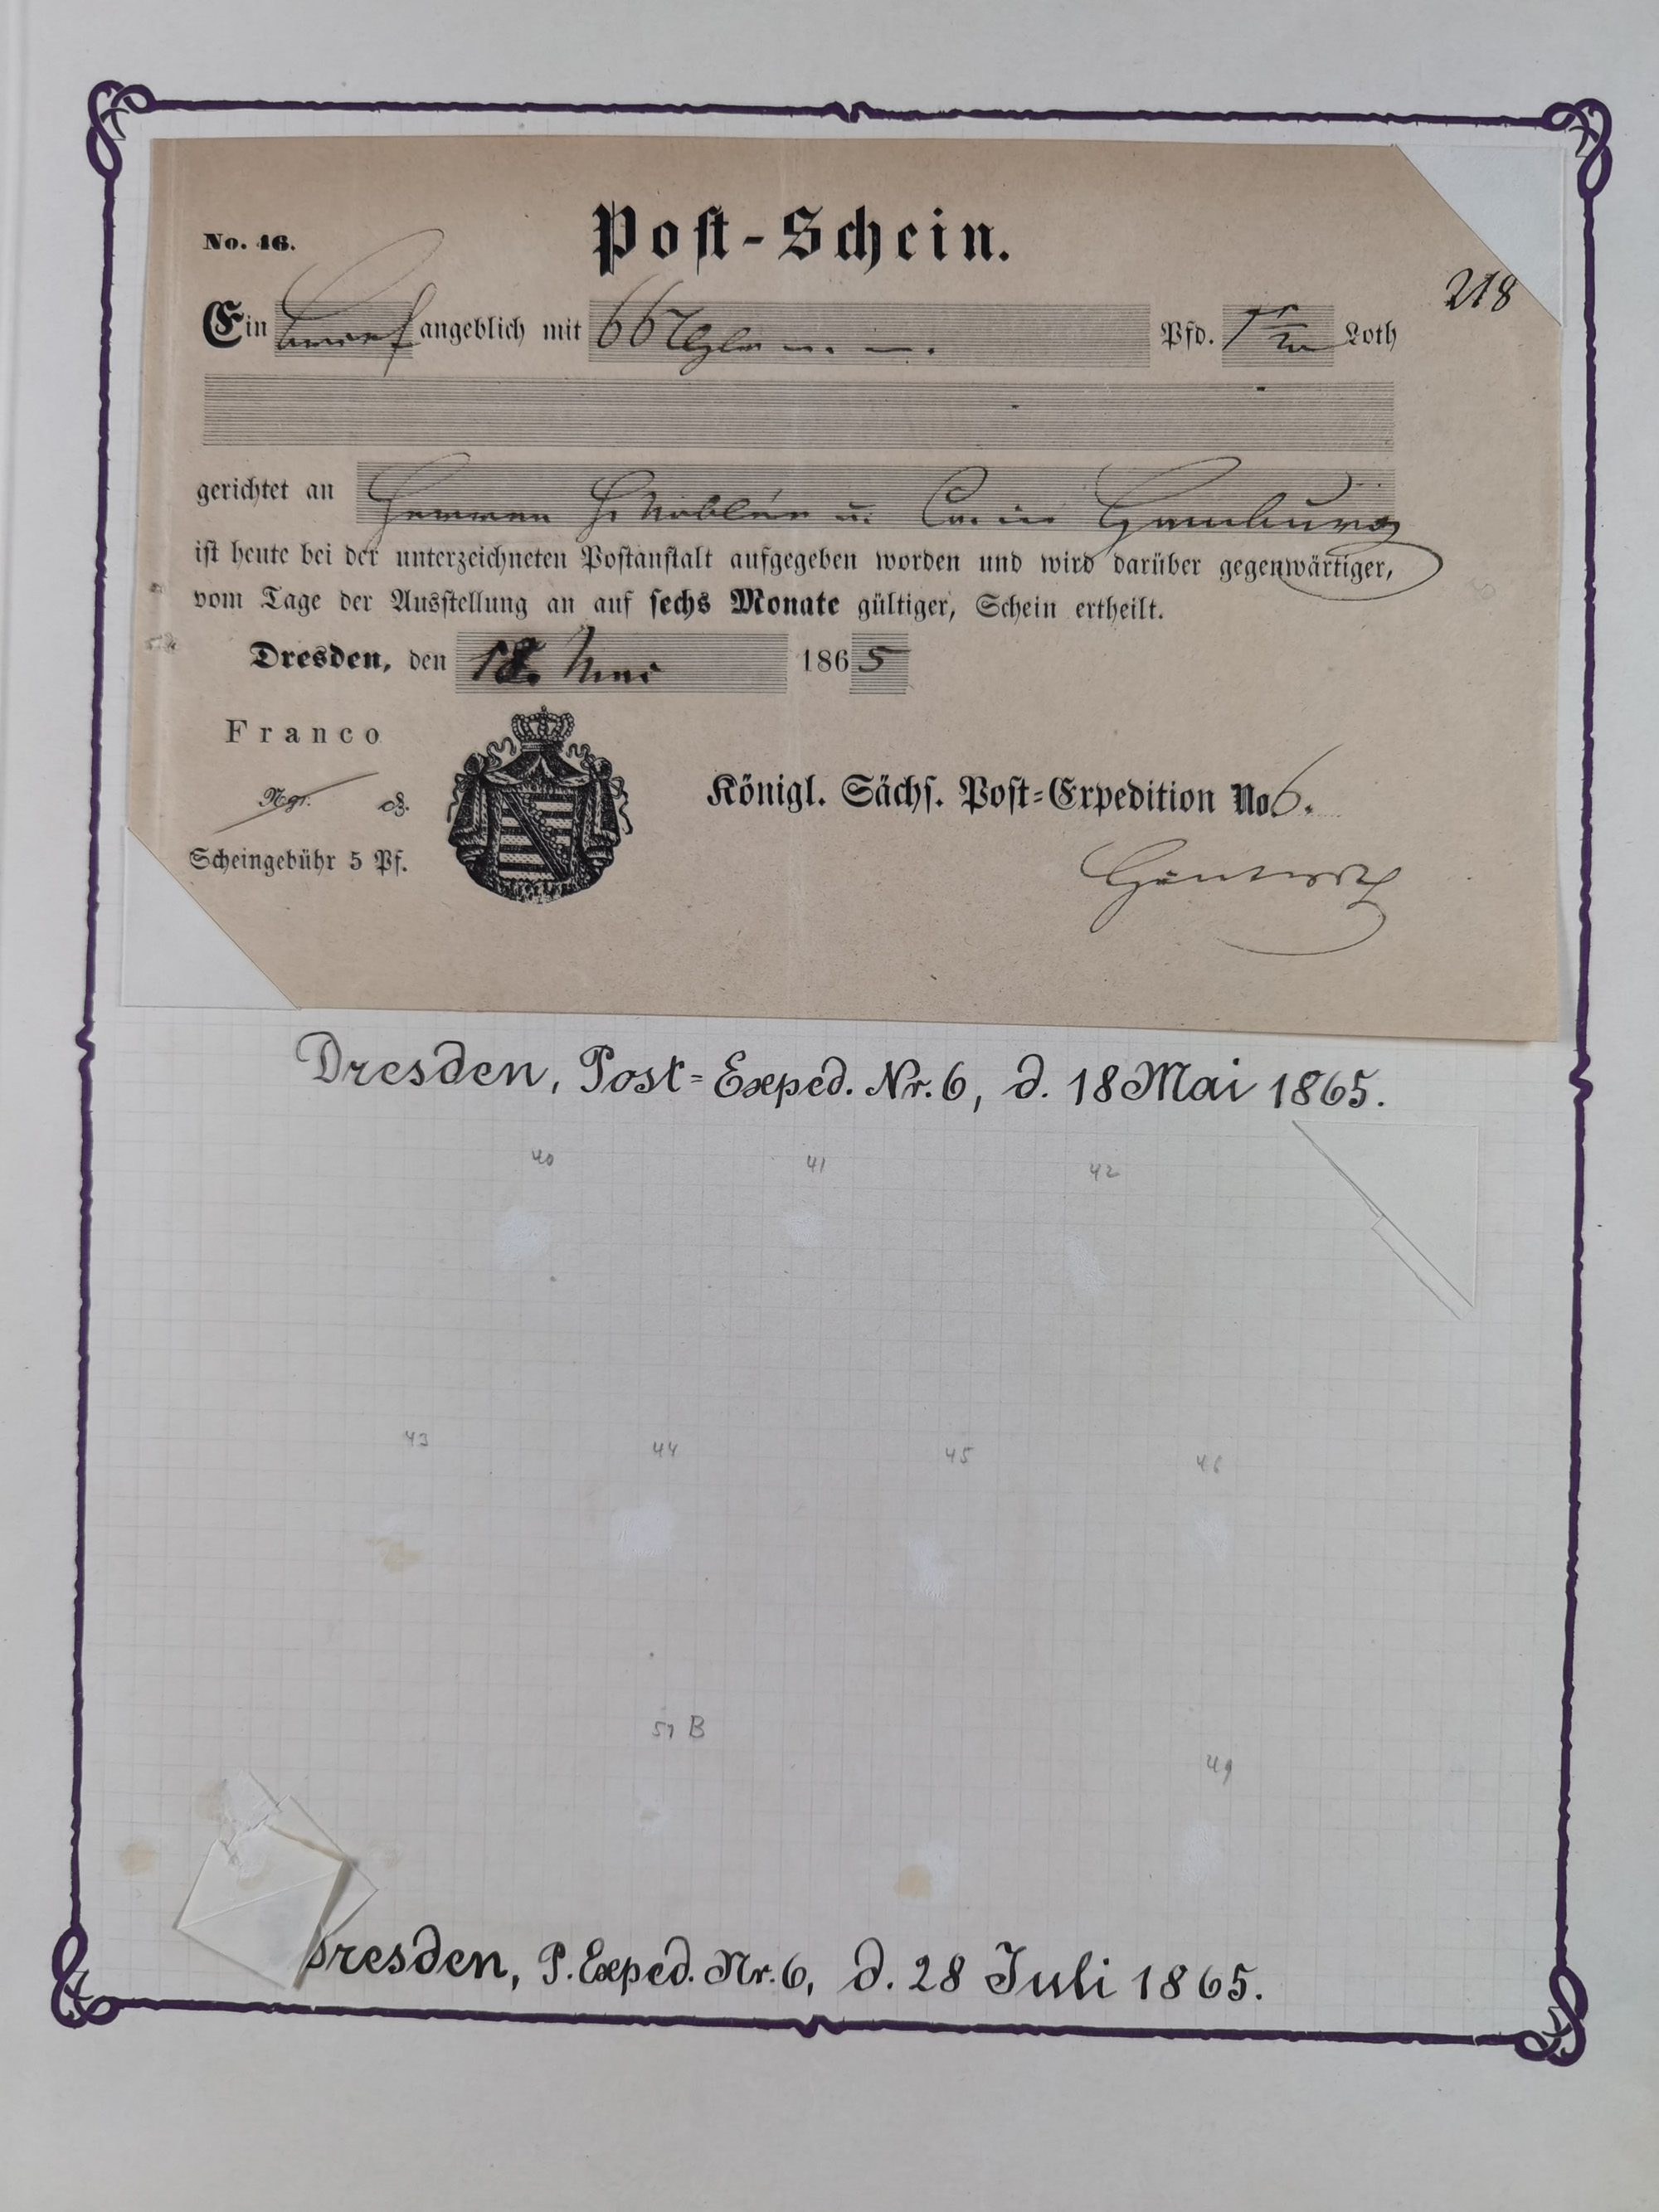 Post-Schein.
No. 16.
218
Ein Brief angeblich mit 66 Pfd. Loth
gerichtet an Herren in Hamburg
ist heute bei der unterzeichneten Postanstalt aufgegeben worden und wird darüber gegenwärtiger,
vom Tage der Ausstellung an auf sechs Monate gültiger, Schein ertheilt.
Dresden, den 18. Mai 1865
Franco
Ngr. ₰.
Scheingebühr 5 Pf.
Königl. Sächs. Post-Expedition No. 6.
Dresden, Post-Exped. Nr. 6, d. 18 Mai 1865.
40 41 42
43 44 45 46
51 B
49
Dresden, P. Exped. Nr. 6, d. 28 Juli 1865.